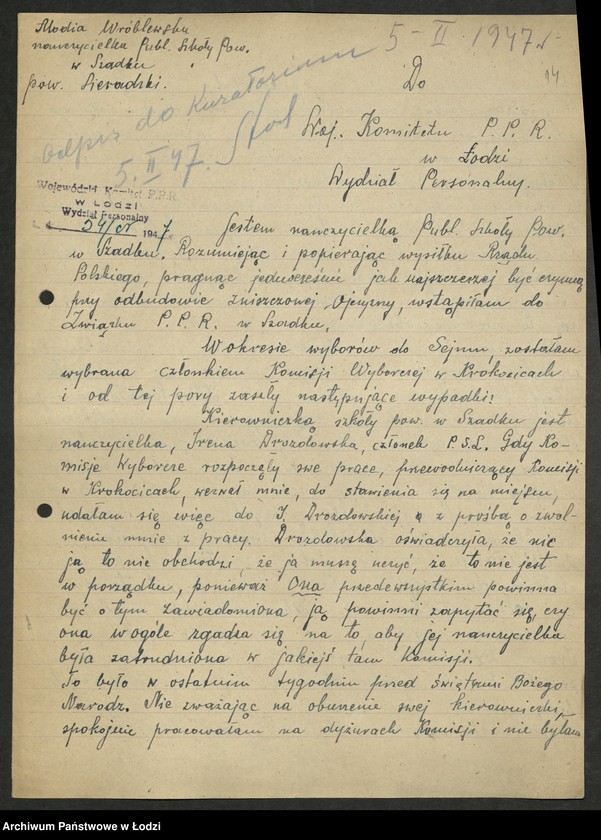 Modia Wróblewska
nauczycielka Publ. Szkoły Pow.
w Szadku
pow. Sieradzki.
5-II 1947 r
14
Odpis do Kuratorium
5.II 47.
Do
Woj. Komitetu P. P. R.
w Łodzi
Wydział Personalny.
Wojewódzki Komitet P.P.R.
W ŁODZI
Wydział Personalny
1947
Jestem nauczycielką Publ. Szkoły Pow.
w Szadku. Rozumiejąc i popierając wysiłku Rządu
Polskiego, pragnąc jednocześnie jak najszczerzej być czynną
przy odbudowie zniszczonej Ojczyzny, wstąpiłam do
Związku P. P. R. w Szadku.
W okresie wyborów do Sejmu, zostałam
wybrana członkiem Komisji Wyborczej w Krokocicach
i od tej pory zaszły następujące wypadki:
Kierowniczką szkoły pow. w Szadku jest
nauczycielka, Irena Drozdowska, członek P.S.L. Gdy Ko-
misje Wyborcze rozpoczęły swe prace, przewodniczący Komisji
w Krokocicach, wezwał mnie, do stawienia się na miejscu,
udałam się więc do I. Drozdowskiej z prośbą o zwol-
nienie mnie z pracy. Drozdowska oświadczyła, że nic
ją to nie obchodzi, że ja muszę uczyć, że to nie jest
w porządku, ponieważ Ona przedewszystkim powinna
być o tym zawiadomiona, ją powinni zapytać się, czy
ona wogóle zgadza się na to, aby jej nauczycielka
była zatrudniona w jakiejś tam Komisji.
To było w ostatnim tygodniu przed świętami Bożego
Narodz. Nie zważając na oburzenie swej kierowniczki,
spokojnie pracowałam na dyżurach Komisji i nie byłam
Archiwum Państwowe w Łodzi